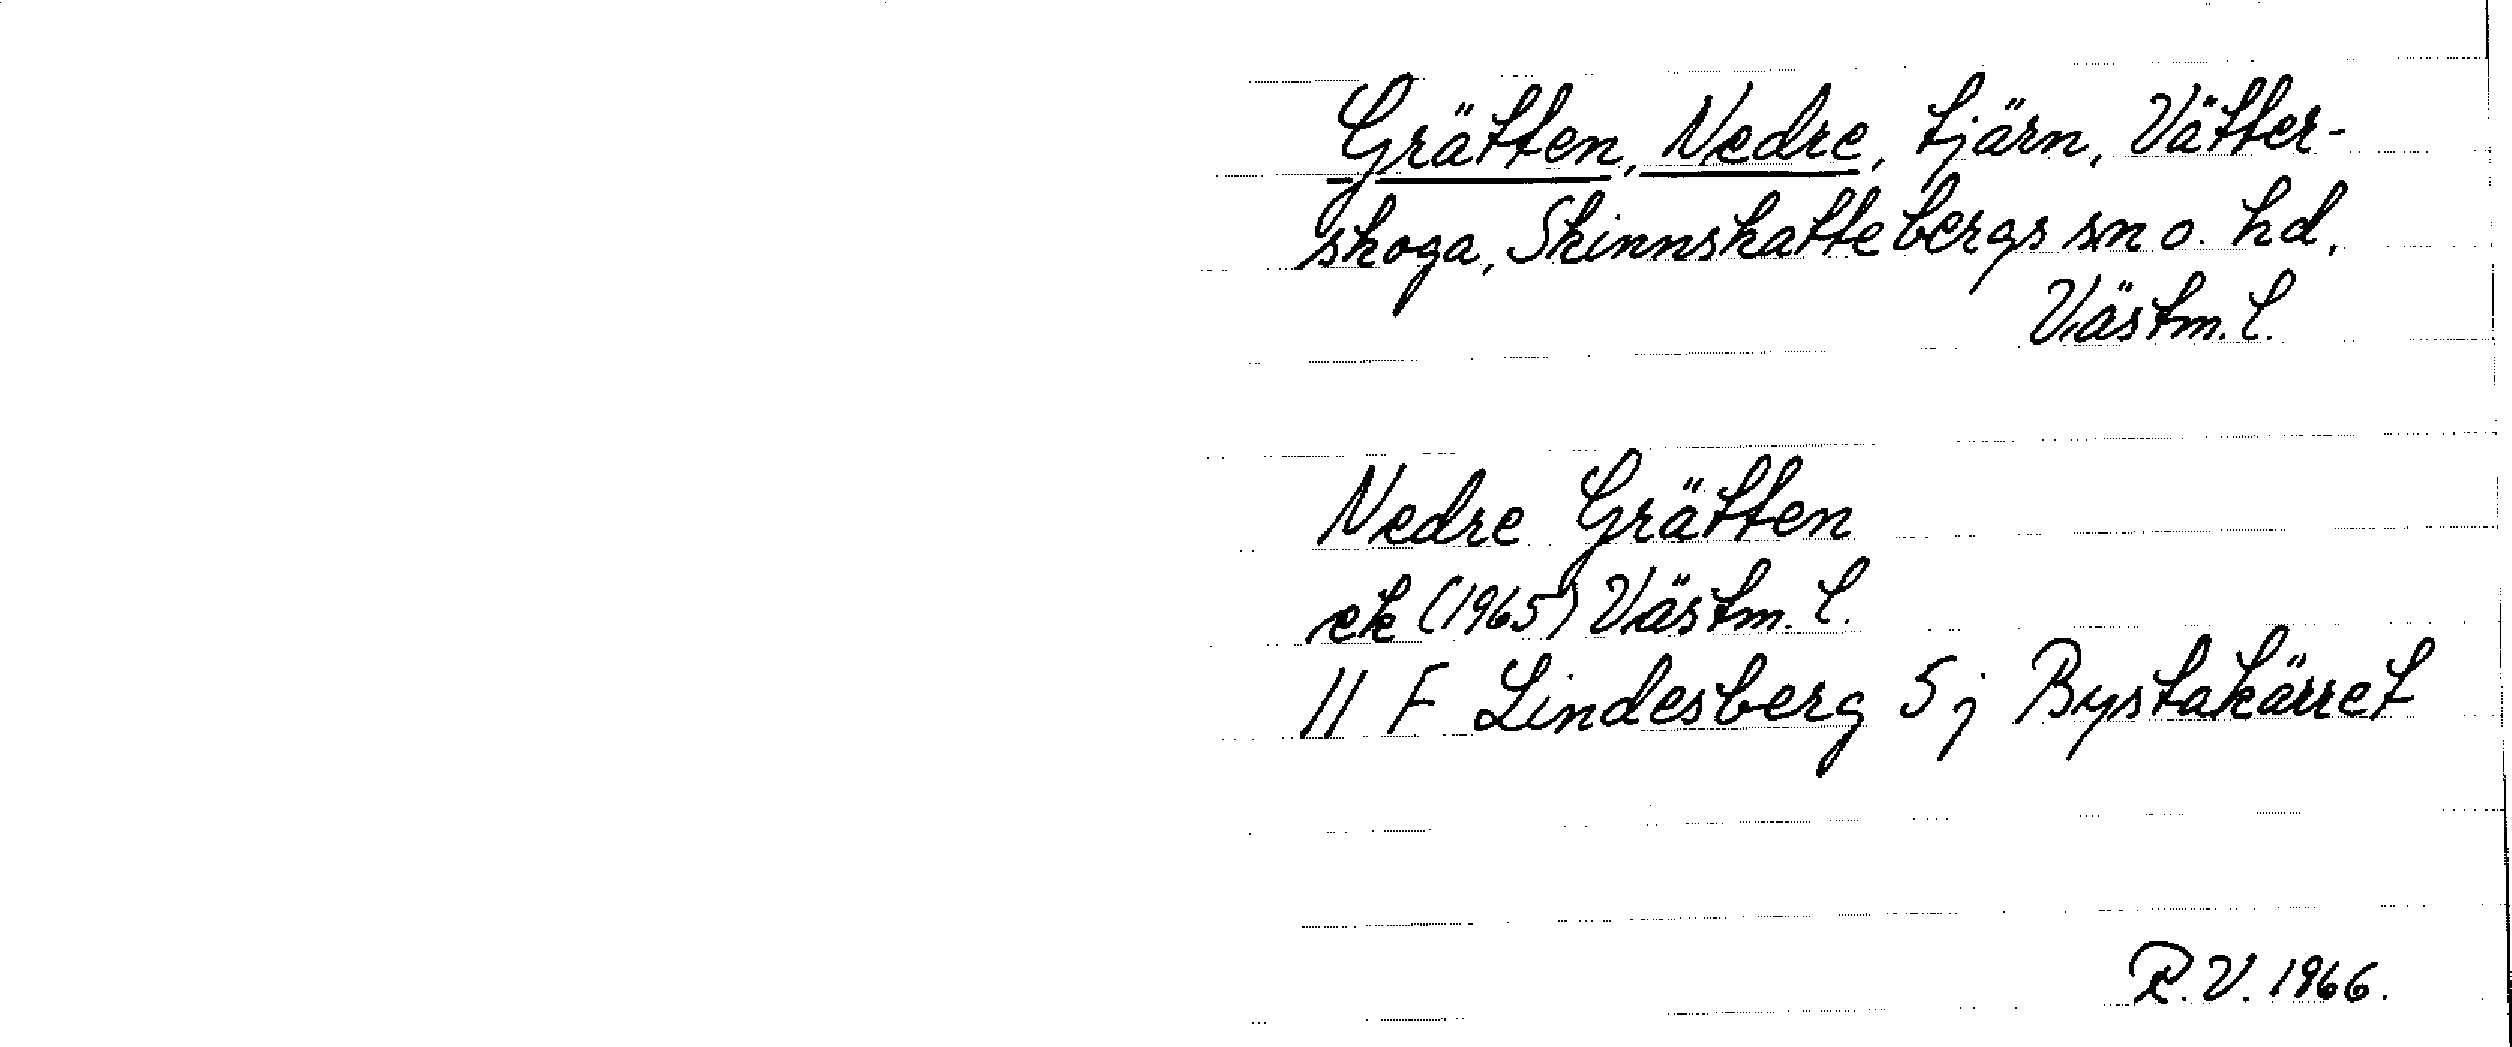 Grätten, Nedre, tjärn, Vätter-
skoga, Skinnskattebergs sn o. hd,
Västm. l.
Nedre Grätten
ek (1965) Västm. l.
11 F Lindesberg 5 j Bystakärret
R. V. 1966.